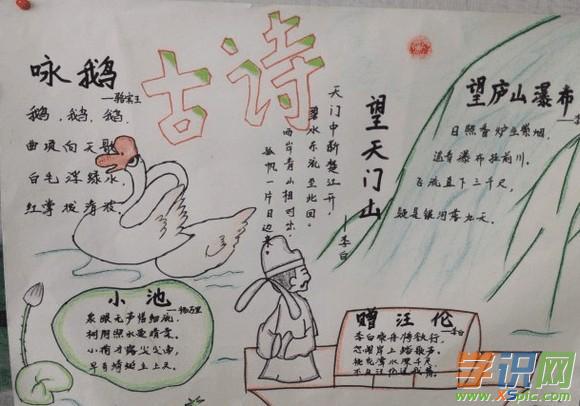 古诗
咏鹅
—骆宾王
鹅,鹅,鹅,
曲项向天歌
白毛浮绿水,
红掌拨清波.
望天门山
—李白
天门中断楚江开,
碧水东流至此回.
两岸青山相对出,
孤帆一片日边来.
望庐山瀑布
日照香炉生紫烟,
遥看瀑布挂前川,
飞流直下三千尺,
疑是银河落九天.
小池
—杨万里
泉眼无声惜细流,
树阴照水爱晴柔.
小荷才露尖尖角,
早有蜻蜓立上头.
赠汪伦
—李白
李白乘舟将欲行,
忽闻岸上踏歌声.
桃花潭水深千尺,
不及汪伦送我情.
学识网
XSpic.com